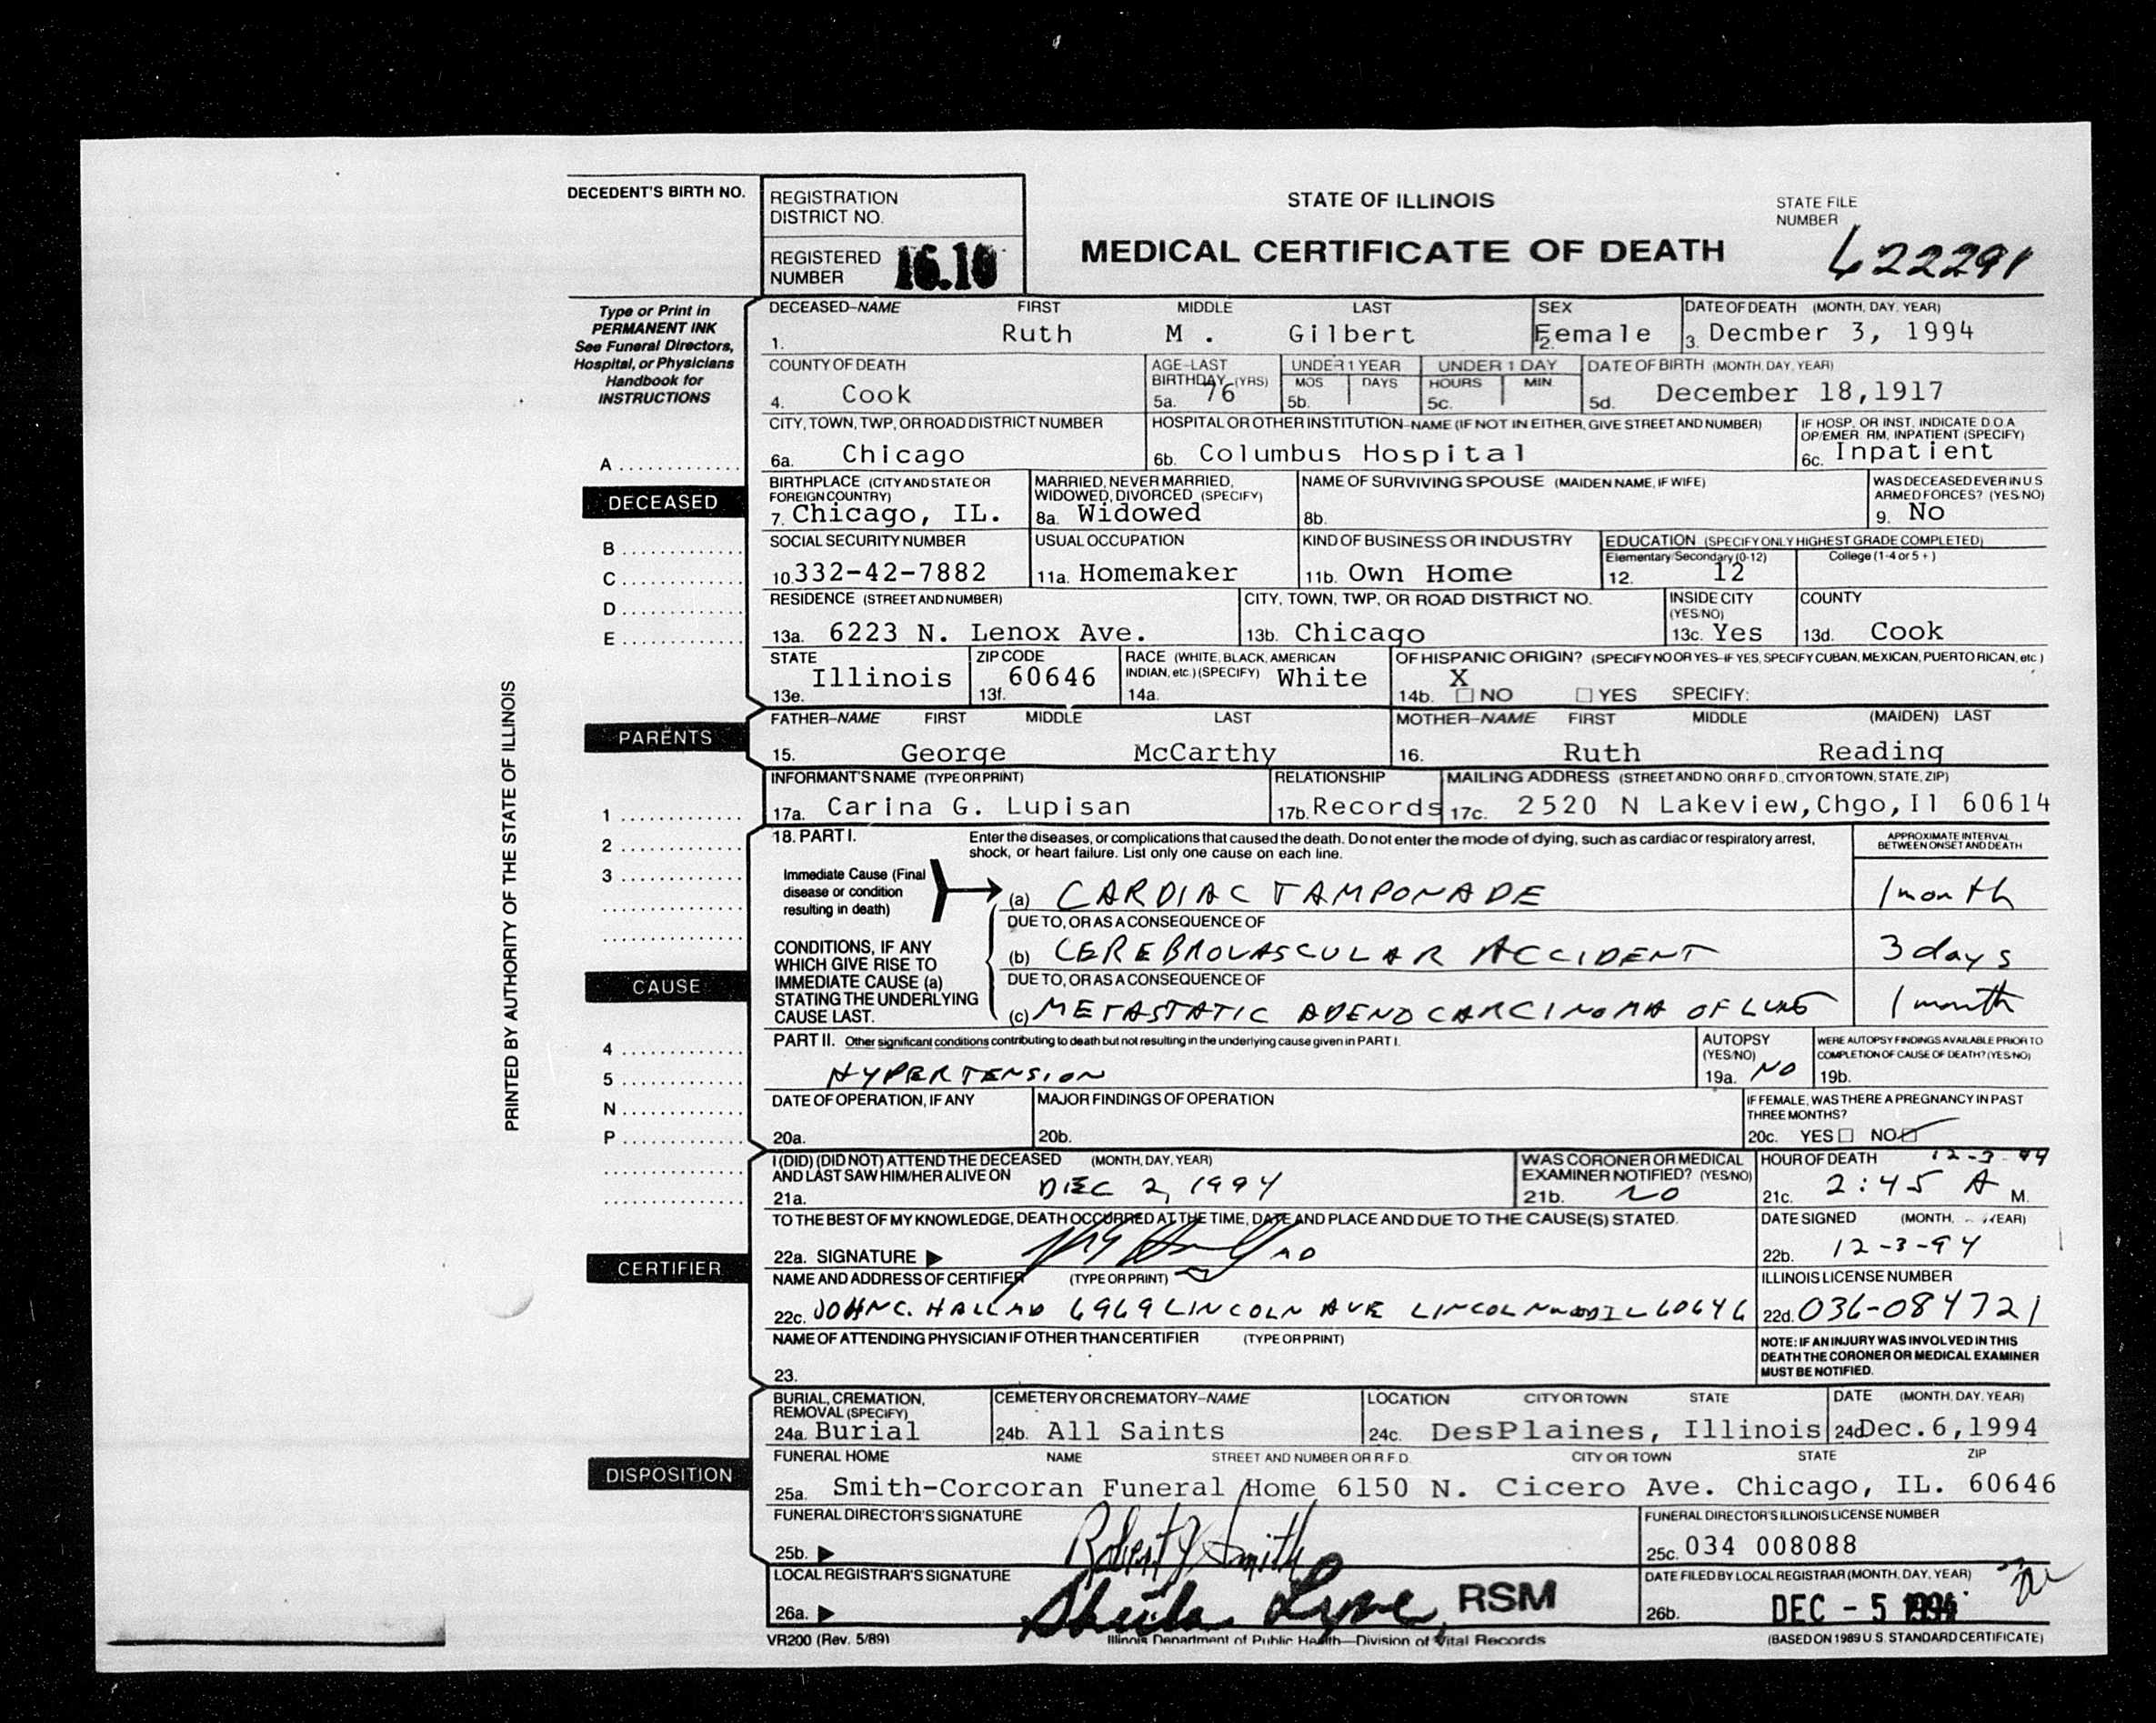 DECEDENT'S BIRTH NO.
REGISTRATION DISTRICT NO.
REGISTERED NUMBER 16.10
STATE OF ILLINOIS
MEDICAL CERTIFICATE OF DEATH
STATE FILE NUMBER 622291
Type or Print in
PERMANENT INK
See Funeral Directors,
Hospital, or Physicians
Handbook for
INSTRUCTIONS
DECEASED-NAME FIRST MIDDLE LAST SEX DATE OF DEATH (MONTH, DAY, YEAR)
1. Ruth M. Gilbert 2. Female 3. Decmber 3, 1994
COUNTY OF DEATH AGE-LAST BIRTHDAY (YRS) UNDER 1 YEAR MOS DAYS UNDER 1 DAY HOURS MIN. DATE OF BIRTH (MONTH, DAY, YEAR)
4. Cook 5a. 76 5b. 5c. 5d. December 18,1917
CITY, TOWN, TWP, OR ROAD DISTRICT NUMBER HOSPITAL OR OTHER INSTITUTION-NAME (IF NOT IN EITHER, GIVE STREET AND NUMBER) IF HOSP. OR INST. INDICATE D.O.A. OP/EMER. RM, INPATIENT (SPECIFY)
A
6a. Chicago 6b. Columbus Hospital 6c. Inpatient
DECEASED
BIRTHPLACE (CITY AND STATE OR FOREIGN COUNTRY) MARRIED, NEVER MARRIED, WIDOWED, DIVORCED (SPECIFY) NAME OF SURVIVING SPOUSE (MAIDEN NAME, IF WIFE) WAS DECEASED EVER IN U.S. ARMED FORCES? (YES/NO)
7. Chicago, IL. 8a. Widowed 8b. 9. No
B
C
D
E
SOCIAL SECURITY NUMBER USUAL OCCUPATION KIND OF BUSINESS OR INDUSTRY EDUCATION (SPECIFY ONLY HIGHEST GRADE COMPLETED) Elementary/Secondary (0-12) College (1-4 or 5+)
10. 332-42-7882 11a. Homemaker 11b. Own Home 12. 12
RESIDENCE (STREET AND NUMBER) CITY, TOWN, TWP, OR ROAD DISTRICT NO. INSIDE CITY (YES/NO) COUNTY
13a. 6223 N. Lenox Ave. 13b. Chicago 13c. Yes 13d. Cook
STATE ZIP CODE RACE (WHITE, BLACK, AMERICAN INDIAN, etc.) (SPECIFY) OF HISPANIC ORIGIN? (SPECIFY NO OR YES-IF YES, SPECIFY CUBAN, MEXICAN, PUERTO RICAN, etc.)
13e. Illinois 13f. 60646 14a. White 14b. X NO YES SPECIFY:
PARENTS
FATHER-NAME FIRST MIDDLE LAST MOTHER-NAME FIRST MIDDLE (MAIDEN) LAST
15. George McCarthy 16. Ruth Reading
INFORMANT'S NAME (TYPE OR PRINT) RELATIONSHIP MAILING ADDRESS (STREET AND NO. OR R.F.D., CITY OR TOWN, STATE, ZIP)
17a. Carina G. Lupisan 17b. Records 17c. 2520 N Lakeview,Chgo,Il 60614
1
2
3
18. PART I. Enter the diseases, or complications that caused the death. Do not enter the mode of dying, such as cardiac or respiratory arrest, shock, or heart failure. List only one cause on each line.
APPROXIMATE INTERVAL BETWEEN ONSET AND DEATH
Immediate Cause (Final disease or condition resulting in death)
(a) CARDIAC TAMPONADE 1 month
DUE TO, OR AS A CONSEQUENCE OF
CAUSE
CONDITIONS, IF ANY WHICH GIVE RISE TO IMMEDIATE CAUSE (a) STATING THE UNDERLYING CAUSE LAST.
(b) CEREBROVASCULAR ACCIDENT 3 days
DUE TO, OR AS A CONSEQUENCE OF
(c) METASTATIC ADENOCARCINOMA OF LUNG 1 month
4
5
N
P
PART II. Other significant conditions contributing to death but not resulting in the underlying cause given in PART I.
HYPERTENSION
AUTOPSY (YES/NO) 19a. NO
WERE AUTOPSY FINDINGS AVAILABLE PRIOR TO COMPLETION OF CAUSE OF DEATH? (YES/NO) 19b.
DATE OF OPERATION, IF ANY 20a.
MAJOR FINDINGS OF OPERATION 20b.
IF FEMALE, WAS THERE A PREGNANCY IN PAST THREE MONTHS?
20c. YES NO
I (DID) (DID NOT) ATTEND THE DECEASED (MONTH, DAY, YEAR) AND LAST SAW HIM/HER ALIVE ON
21a. DEC 2, 1994
WAS CORONER OR MEDICAL EXAMINER NOTIFIED? (YES/NO) 21b. NO
HOUR OF DEATH 12-3-94
21c. 2:45 A M.
CERTIFIER
TO THE BEST OF MY KNOWLEDGE, DEATH OCCURRED AT THE TIME, DATE AND PLACE AND DUE TO THE CAUSE(S) STATED.
22a. SIGNATURE MD
DATE SIGNED (MONTH, YEAR)
22b. 12-3-94
NAME AND ADDRESS OF CERTIFIER (TYPE OR PRINT)
22c. JOHN C. HALL MD 6969 LINCOLN AVE LINCOLNWOOD IL 60646
ILLINOIS LICENSE NUMBER
22d. 036-084721
NAME OF ATTENDING PHYSICIAN IF OTHER THAN CERTIFIER (TYPE OR PRINT)
23.
NOTE: IF AN INJURY WAS INVOLVED IN THIS DEATH THE CORONER OR MEDICAL EXAMINER MUST BE NOTIFIED.
DISPOSITION
BURIAL, CREMATION, REMOVAL (SPECIFY) CEMETERY OR CREMATORY-NAME LOCATION CITY OR TOWN STATE DATE (MONTH, DAY, YEAR)
24a. Burial 24b. All Saints 24c. DesPlaines, Illinois 24d. Dec.6,1994
FUNERAL HOME NAME STREET AND NUMBER OR R.F.D. CITY OR TOWN STATE ZIP
25a. Smith-Corcoran Funeral Home 6150 N. Cicero Ave. Chicago, IL. 60646
FUNERAL DIRECTOR'S SIGNATURE
25b. Robert J Smith
FUNERAL DIRECTOR'S ILLINOIS LICENSE NUMBER
25c. 034 008088
LOCAL REGISTRAR'S SIGNATURE
26a. Sheila Lyne, RSM
DATE FILED BY LOCAL REGISTRAR (MONTH, DAY, YEAR)
26b. DEC - 5 1994
VR200 (Rev. 5/89) Illinois Department of Public Health—Division of Vital Records (BASED ON 1989 U.S. STANDARD CERTIFICATE)
PRINTED BY AUTHORITY OF THE STATE OF ILLINOIS